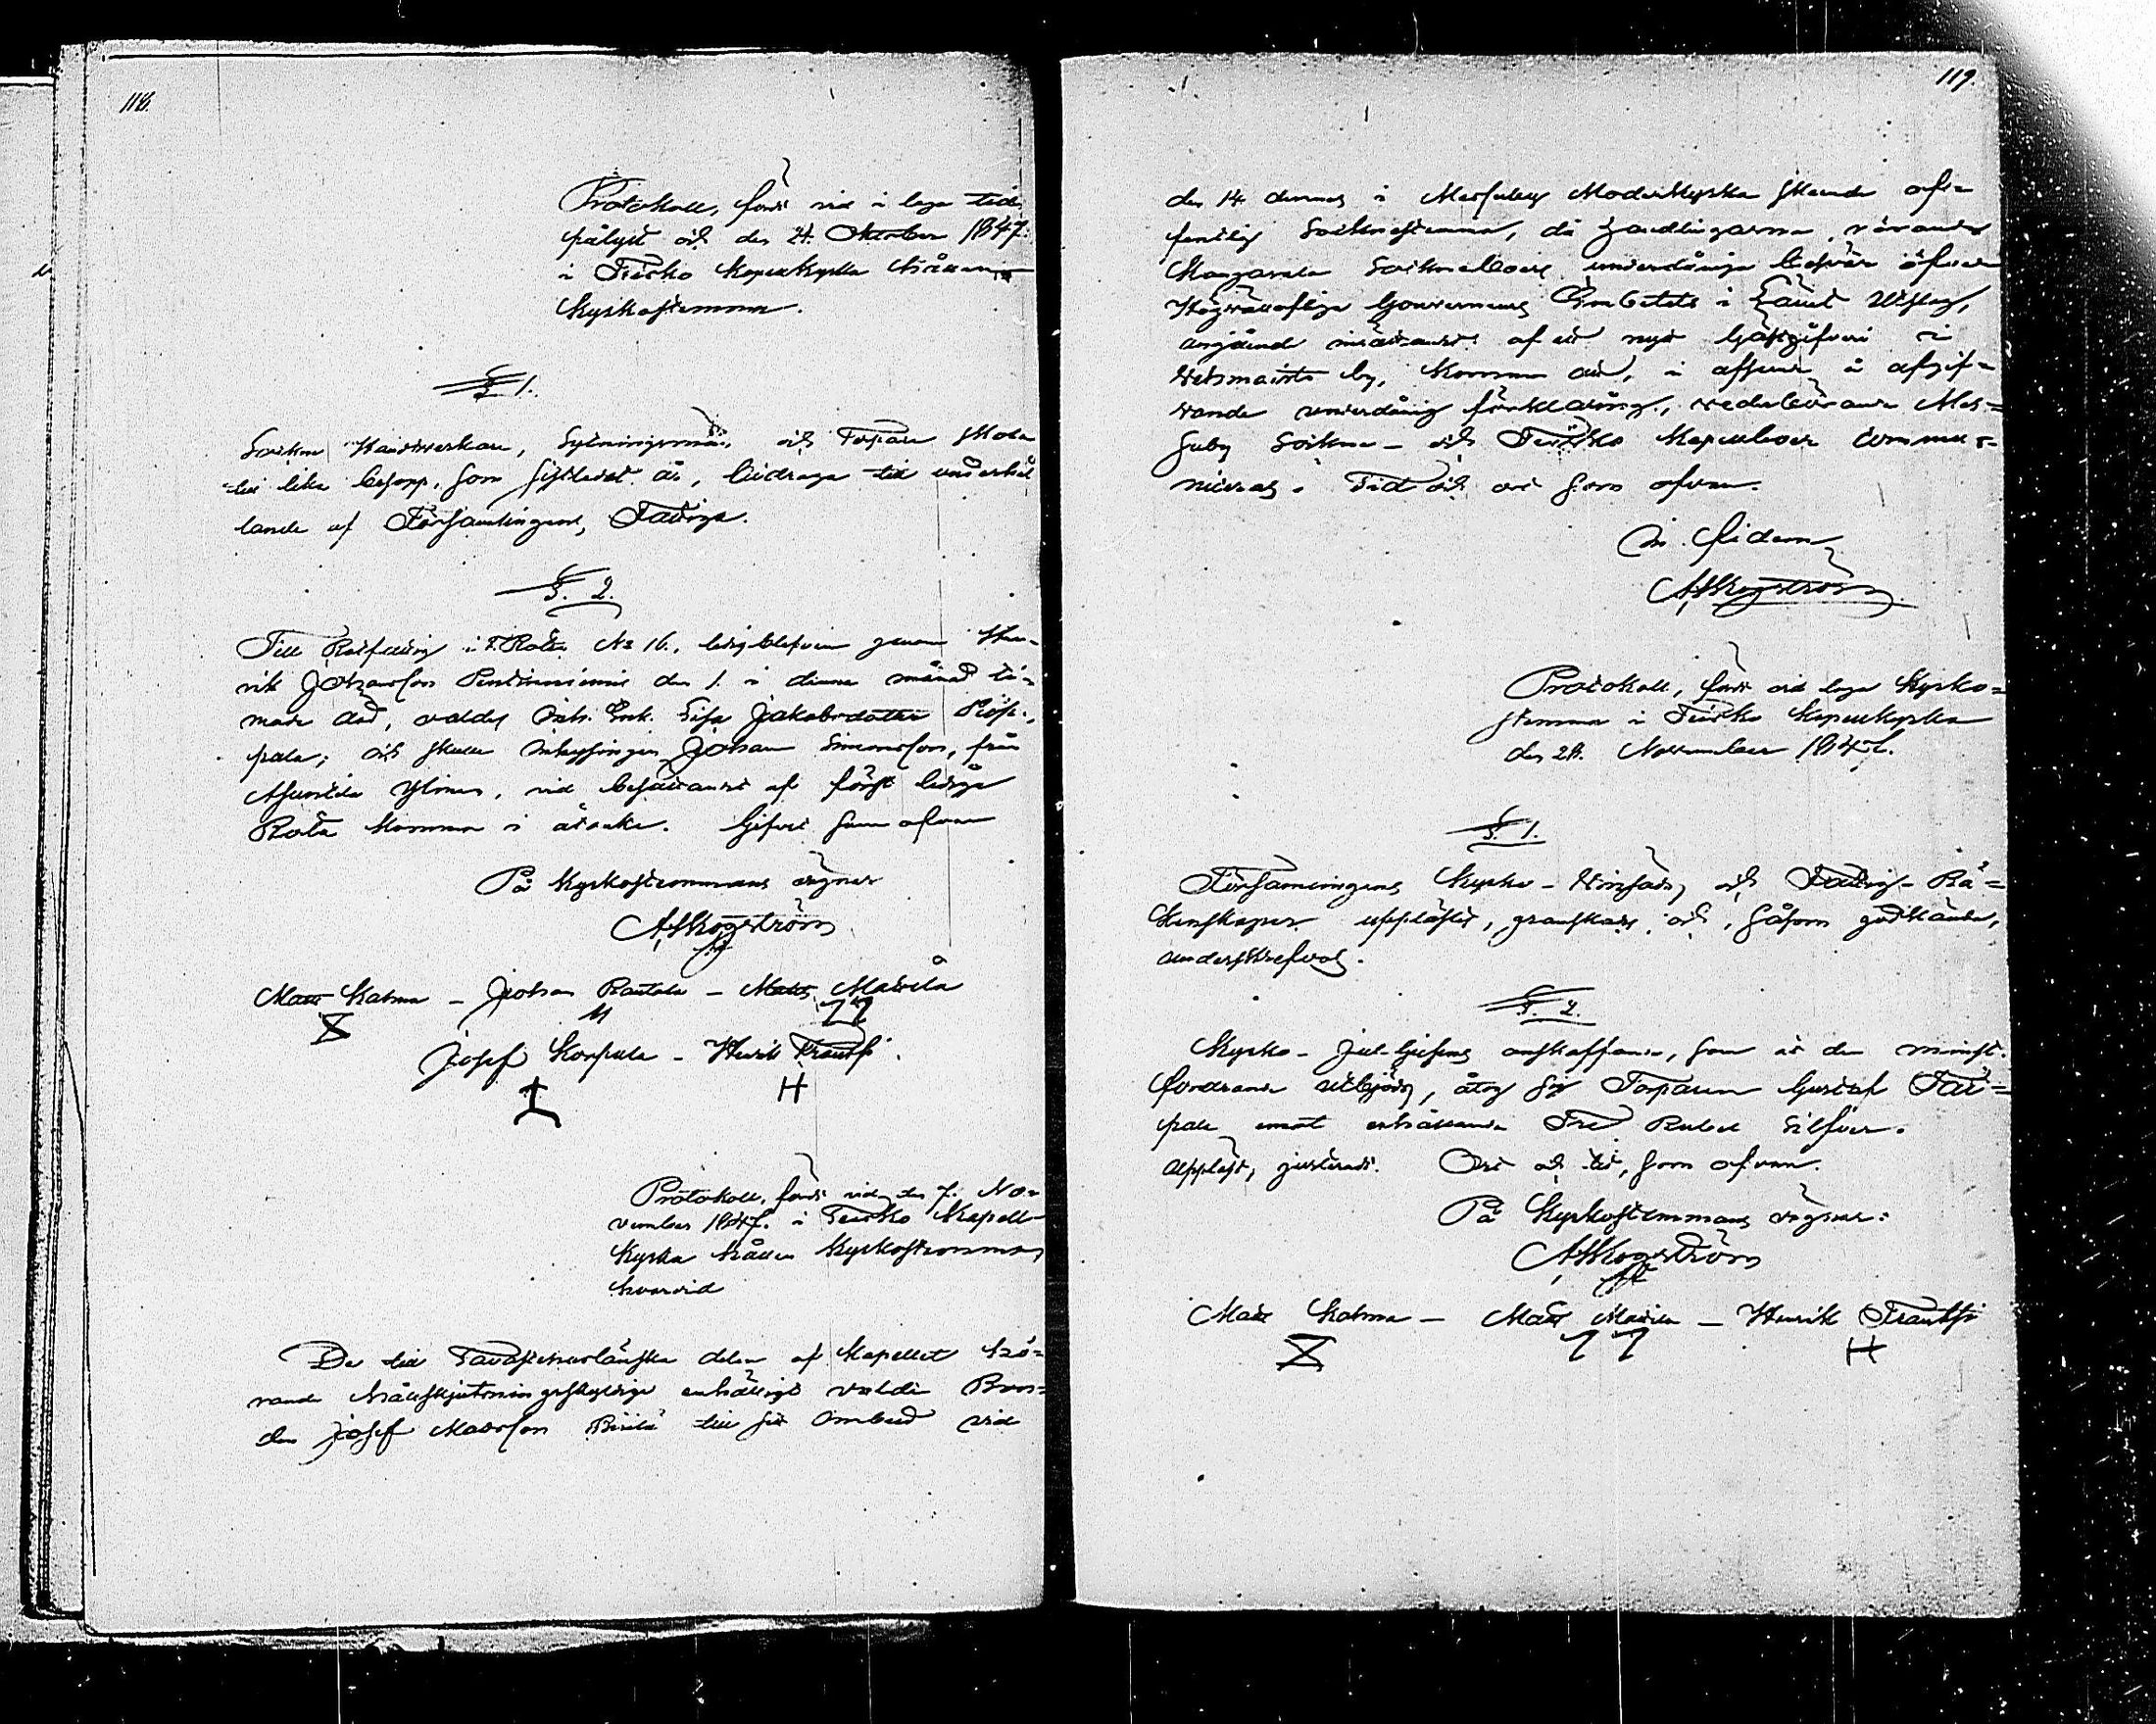 118.
Protokoll, fördt vid i laga tid
pålyst och den 24. Oktober 1847.
i Teisko Kapellkyrka hållen
Kyrkostemma.
§ 1.
Sockne Handtverkare, Sytningsmän, och Torpare skola
till lika belopp, som stadgadt är, bidraga till underhål
lande af Församlingens Fattiga.
§. 2.
Till Rotfattig i Rotan No 16., ledig blefven genom Hen-
rik Johansson Penttiniemis den 1. i denna månad ti-
made död, valdes Enk. Lisa Jakobsdotter
pala; och skulle Inhysingen Johan Simonsson, från
Asuntila Ylinen, vid besättandet af först lediga
Rota komma i åtanke. Gifvet som ofvan
På Kyrkostemmans vägnar
A. Skogström
Matts Kahma - Johan Rautala - Matts Mattila
Josef Korpula - Henrik Frantsi.
Protokoll, fördt vid den 7. No-
vember 1847. i Teisko Kapell-
kyrka hållen Kyrkostemma,
hvarvid
De till Tavastehuslänska delen af Kapellet hö-
rande hållskjutsningsskyldige enhälligt valde Bon-
den Josef Mattsson till sitt Ombud vid
119.
den 14 dennes i Messuby Moderkyrka skeende of-
fentlig Socknestemma, då handlingarna, rörande
Kangasala Sockneboers underdåniga besvär öfver
Höglofliga Gouvernements Embetets i Länet Utslag,
angående inrättandet af ett nytt Gästgifveri i
by, komma att, i afseende å afgif-
vande underdånig förklaring, vederbörande Mes-
suby Sockne- och Teisko Kapellboer commu-
niceras. Tid och ort som ofvan.
In fidem
A. Skogström
Protokoll, fördt vid laga Kyrko-
stemma i Teisko Kapellkyrka
den 28. November 1847.
§. 1.
Församlingens Kyrko- Vinsäds och Fattig- Rä-
kenskaper upplästes, granskades och, såsom godkända,
underskrefvos.
§. 2.
Kyrko- Jul-ljusens anskaffande, som åt den minst-
fordrande utbjöds, åtog sig Torparen Gustaf Tai-
pale emot erhållande Tre Rubel Silfver.
Uppläst, justeradt. Ort och tid, som ofvan.
På Kyrkostemmans vägnar:
A. Skogström
Matts Kahma - Matts Mattila - Henrik Frantsi